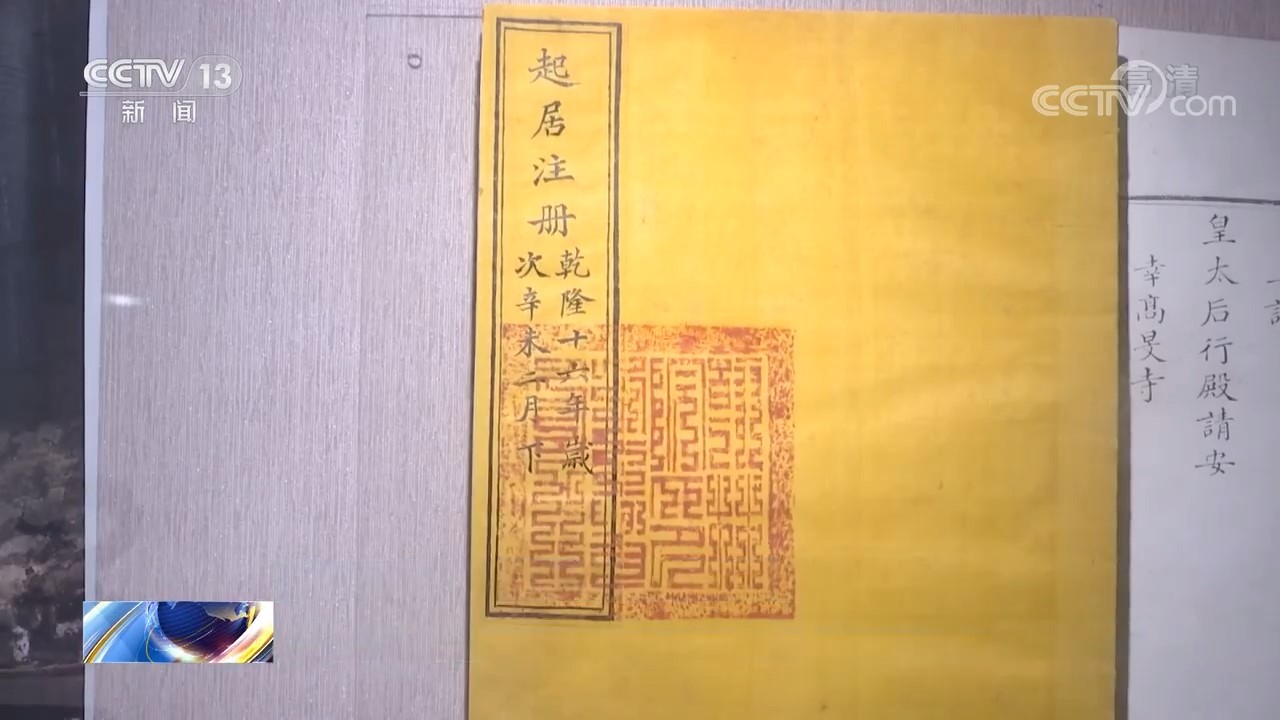 CCTV 13
新闻
高清
CCTV.com
起居注册
乾隆十六年歲
次辛未二月下
皇太后行殿請安
幸高旻寺